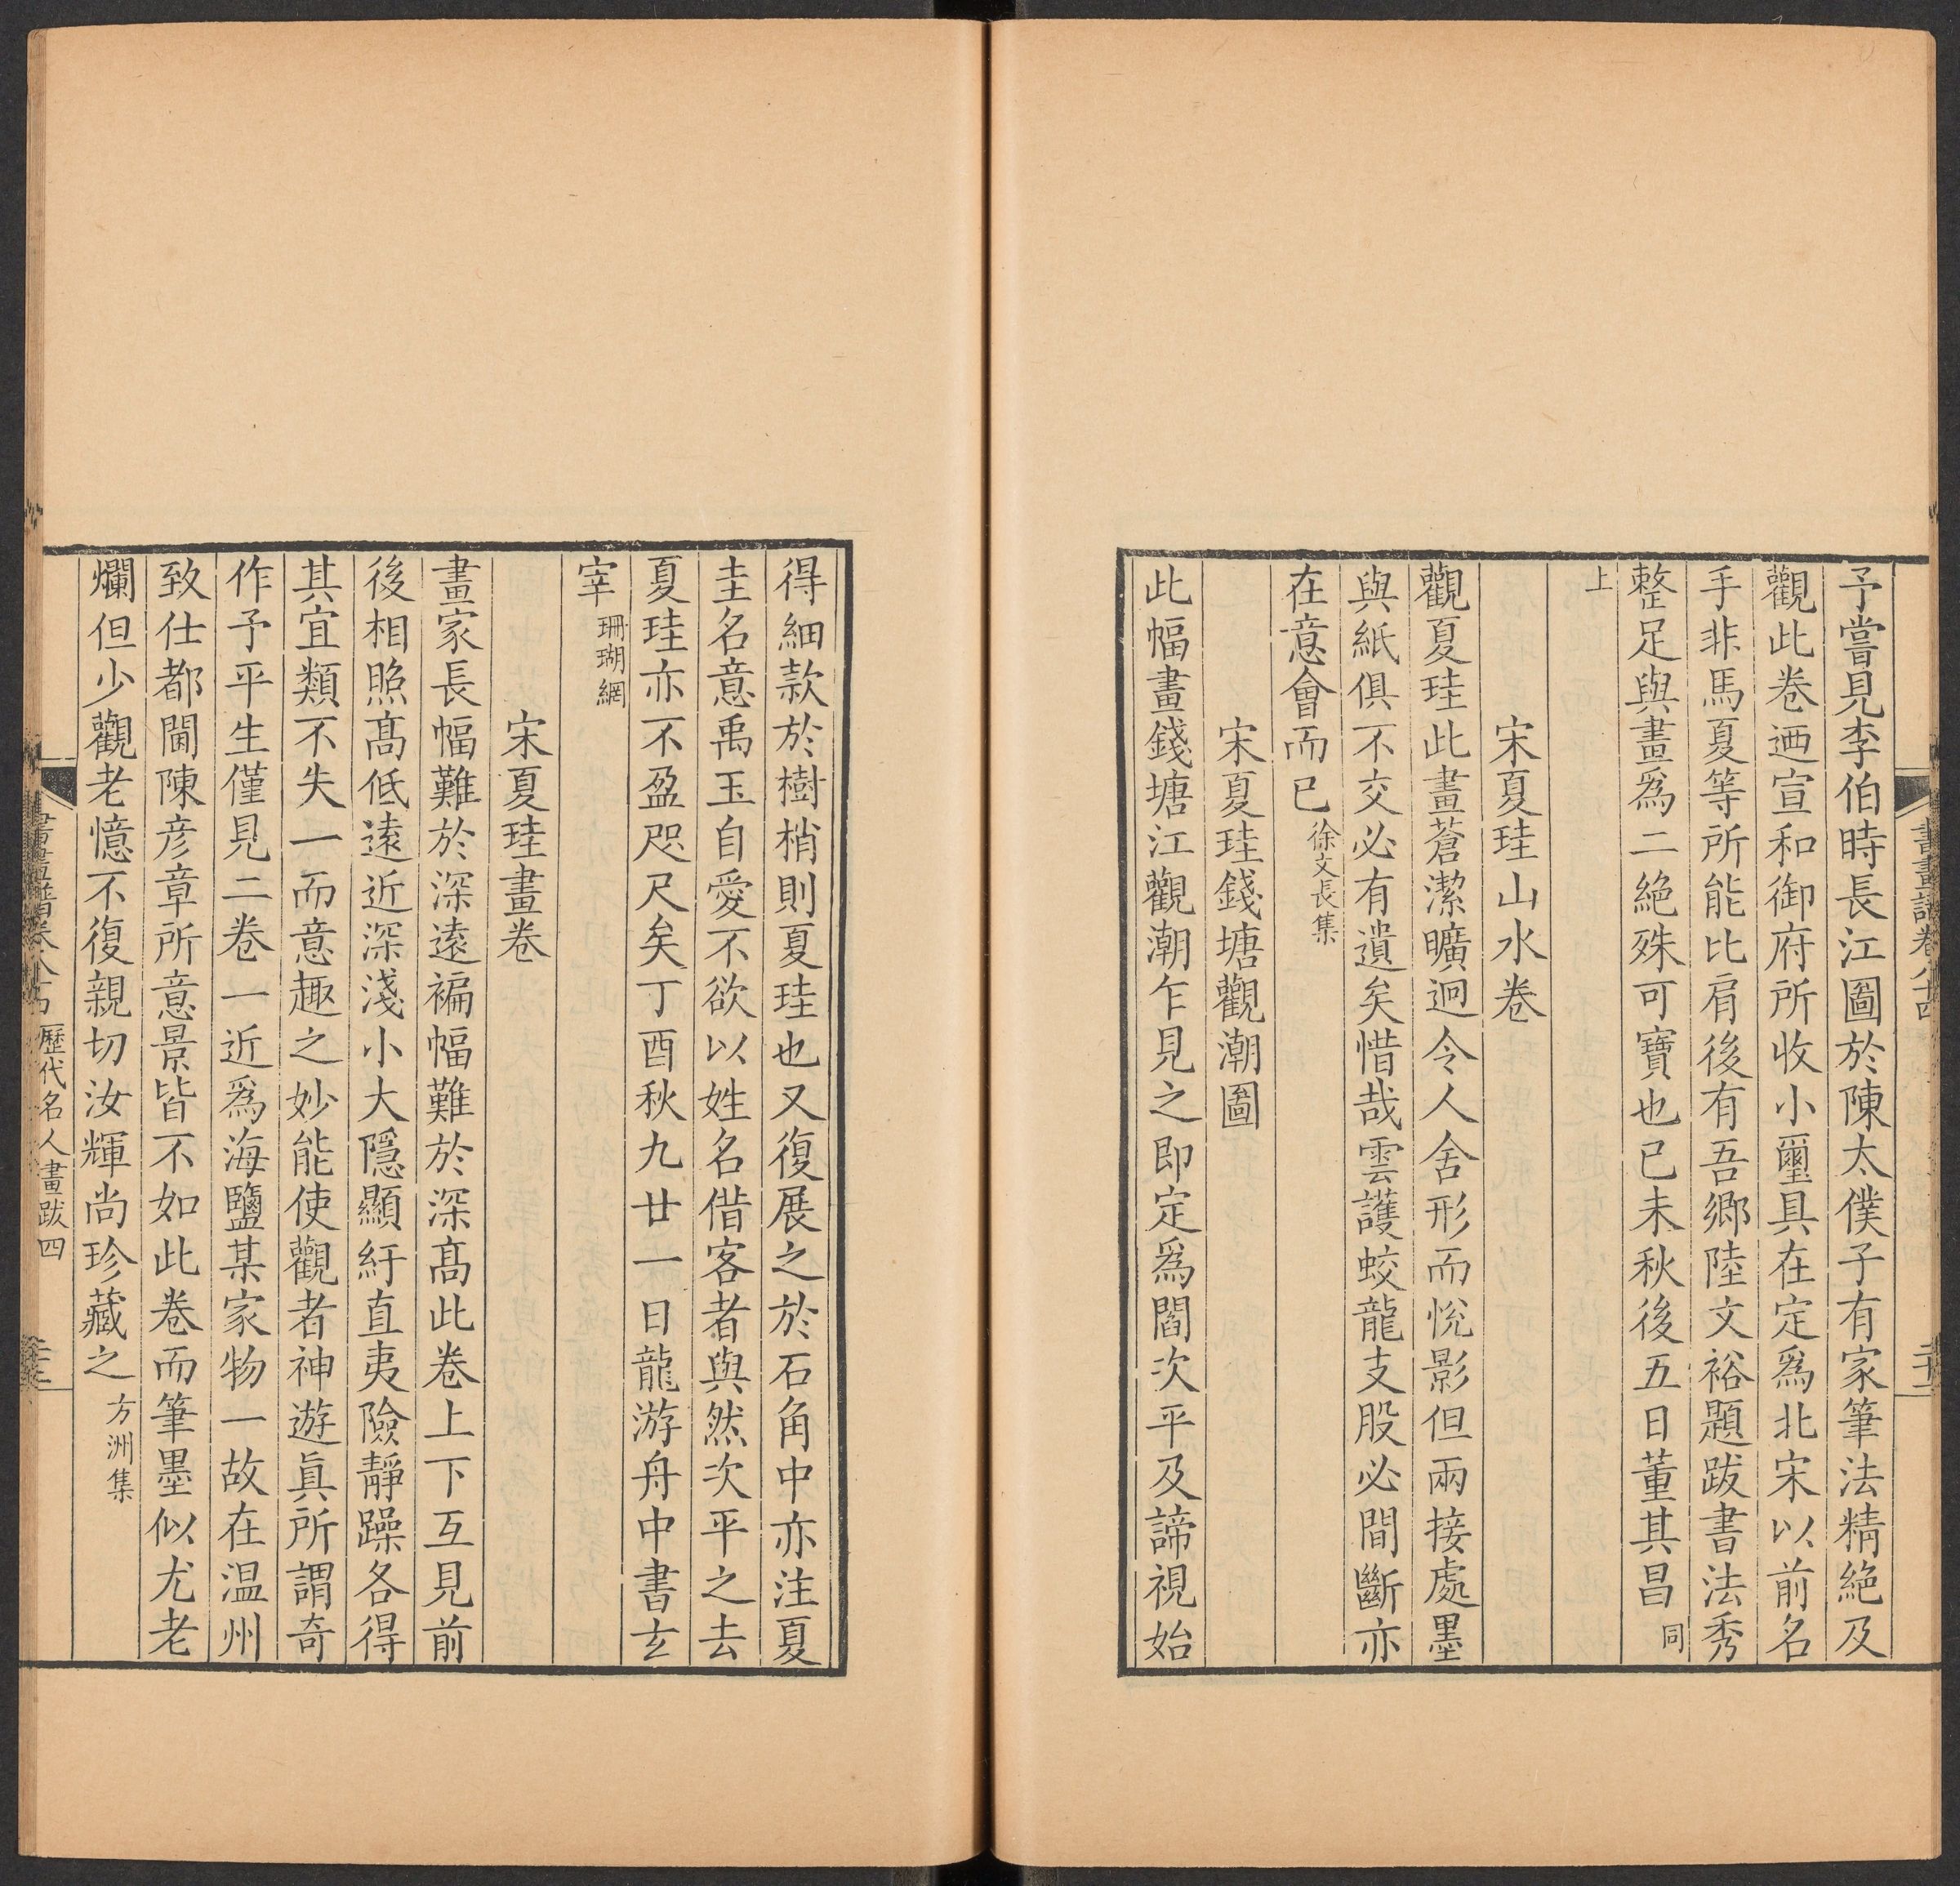 書畫譜卷八十四
予嘗見李伯時長江圖於陳太僕子有家筆法精絕及
觀此卷迺宣和御府所收小璽具在定爲北宋以前名
手非馬夏等所能比肩後有吾鄉陸文裕題跋書法秀
整足與畫爲二絕殊可寶也已未秋後五日董其昌同
上
宋夏珪山水卷
觀夏珪此畫蒼潔曠迥令人舍形而悅影但兩接處墨
與紙俱不交必有遺矣惜哉雲護蛟龍支股必間斷亦
在意會而已徐文長集
宋夏珪錢塘觀潮圖
此幅畫錢塘江觀潮乍見之即定爲閻次平及諦視始
得細款於樹梢則夏珪也又復展之於石角中亦注夏
圭名意禹玉自愛不欲以姓名借客者與然次平之去
夏珪亦不盈咫尺矣丁酉秋九廿一日龍游舟中書玄
宰珊瑚網
宋夏珪畫卷
畫家長幅難於深遠褊幅難於深高此卷上下互見前
後相照高低遠近深淺小大隱顯紆直夷險靜躁各得
其宜類不失一而意趣之妙能使觀者神遊眞所謂奇
作予平生僅見二卷一近爲海鹽某家物一故在温州
致仕都閫陳彦章所意景皆不如此卷而筆墨似尤老
爛但少觀老憶不復親切汝輝尚珍藏之方洲集
書畫譜卷八十四 歷代名人畫跋四